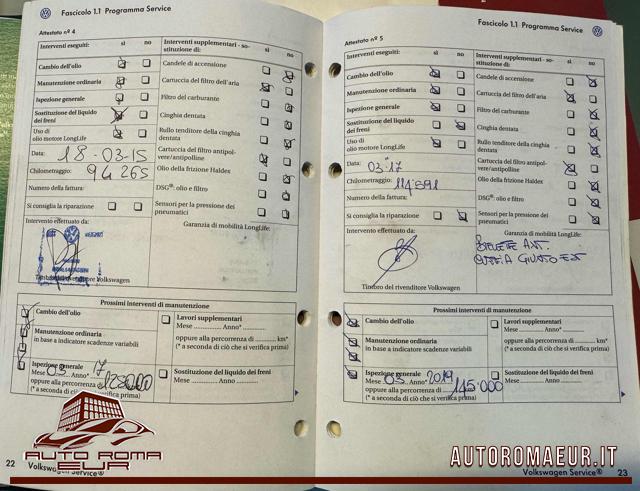 Fascicolo 1.1 Programma Service
Attestato nº 4
Interventi eseguiti: sì no
Cambio dell'olio
Manutenzione ordinaria
Ispezione generale
Sostituzione del liquido
dei freni
Uso di
olio motore LongLife
Data: 18-03-15
Chilometraggio: 94 265
Numero della fattura:
Si consiglia la riparazione
Intervento effettuato da:
Interventi supplementari - so-
stituzione di: sì no
Candele di accensione
Cartuccia del filtro dell'aria
Filtro del carburante
Cinghia dentata
Rullo tenditore della cinghia
dentata
Cartuccia del filtro antipol-
vere/antipolline
Olio della frizione Haldex
DSG®: olio e filtro
Sensori per la pressione dei
pneumatici
Garanzia di mobilità LongLife:
Prossimi interventi di manutenzione
Cambio dell'olio
Manutenzione ordinaria
in base a indicatore scadenze variabili
Ispezione generale
Mese 03 Anno* 17
oppure alla percorrenza di
(* a seconda di ciò che si verifica prima)
Lavori supplementari
Mese ............ Anno* ............
oppure alla percorrenza di ............ km*
(* a seconda di ciò che si verifica prima)
Sostituzione del liquido dei freni
Mese ............ Anno ............
22 Volkswagen Service®
AUTO ROMA
EUR
Fascicolo 1.1 Programma Service
Attestato nº 5
Interventi eseguiti: sì no
Cambio dell'olio
Manutenzione ordinaria
Ispezione generale
Sostituzione del liquido
dei freni
Uso di
olio motore LongLife
Data: 03-17
Chilometraggio: 114'891
Numero della fattura:
Si consiglia la riparazione
Intervento effettuato da:
Timbro del rivenditore Volkswagen
Interventi supplementari - so-
stituzione di: sì no
Candele di accensione
Cartuccia del filtro dell'aria
Filtro del carburante
Cinghia dentata
Rullo tenditore della cinghia
dentata
Cartuccia del filtro antipol-
vere/antipolline
Olio della frizione Haldex
DSG®: olio e filtro
Sensori per la pressione dei
pneumatici
Garanzia di mobilità LongLife:
Prossimi interventi di manutenzione
Cambio dell'olio
Manutenzione ordinaria
in base a indicatore scadenze variabili
Ispezione generale
Mese 03 Anno* 2019
oppure alla percorrenza di 145.000
(* a seconda di ciò che si verifica prima)
Lavori supplementari
Mese ............ Anno* ............
oppure alla percorrenza di ............ km*
(* a seconda di ciò che si verifica prima)
Sostituzione del liquido dei freni
Mese ............ Anno ............
AUTOROMAEUR.IT
Volkswagen Service® 23